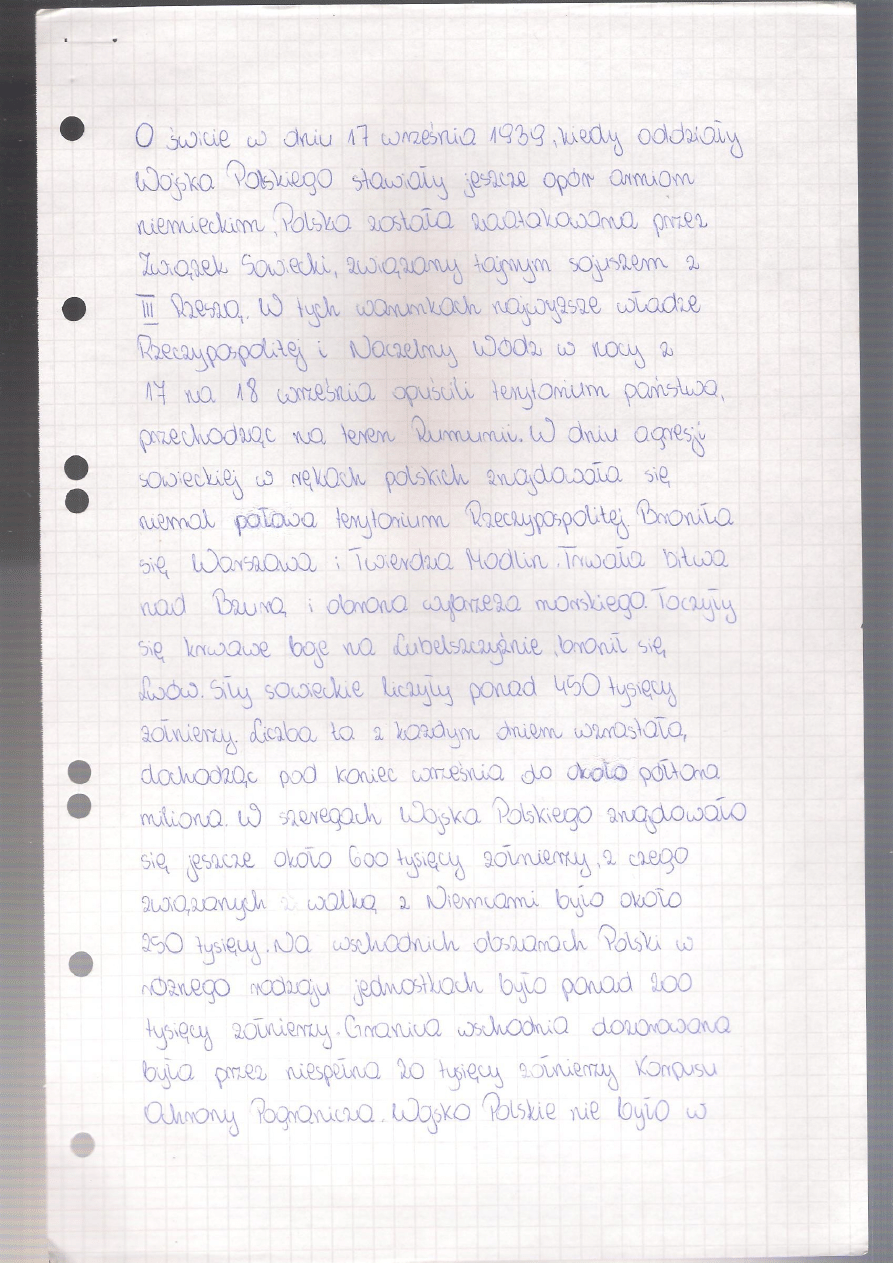 O świcie w dniu 17 września 1939, kiedy oddziały
Wojska Polskiego stawiały jeszcze opór armiom
niemieckim, Polska została zaatakowana przez
Związek Sowiecki, związany tajnym sojuszem z
III Rzeszą. W tych warunkach najwyższe władze
Rzeczypospolitej i Naczelny Wódz w nocy z
17 na 18 września opuścili terytorium państwa,
przechodząc na teren Rumunii. W dniu agresji
sowieckiej w rękach polskich znajdowała się
niemal połowa terytorium Rzeczypospolitej. Broniła
się Warszawa i Twierdza Modlin. Trwała bitwa
nad Bzurą i obrona wybrzeża morskiego. Toczyły
się krwawe boje na Lubelszczyźnie, bronił się
Lwów. Siły sowieckie liczyły ponad 450 tysięcy
żołnierzy. Liczba ta z każdym dniem wzrastała,
dochodząc pod koniec września do około półtora
miliona. W szeregach Wojska Polskiego znajdowało
się jeszcze około 600 tysięcy żołnierzy, z czego
związanych z walką z Niemcami było około
250 tysięcy. Na wschodnich obszarach Polski w
różnego rodzaju jednostkach było ponad 200
tysięcy żołnierzy. Granica wschodnia dozorowana
była przez niespełna 20 tysięcy żołnierzy Korpusu
Ochrony Pogranicza. Wojsko Polskie nie było w